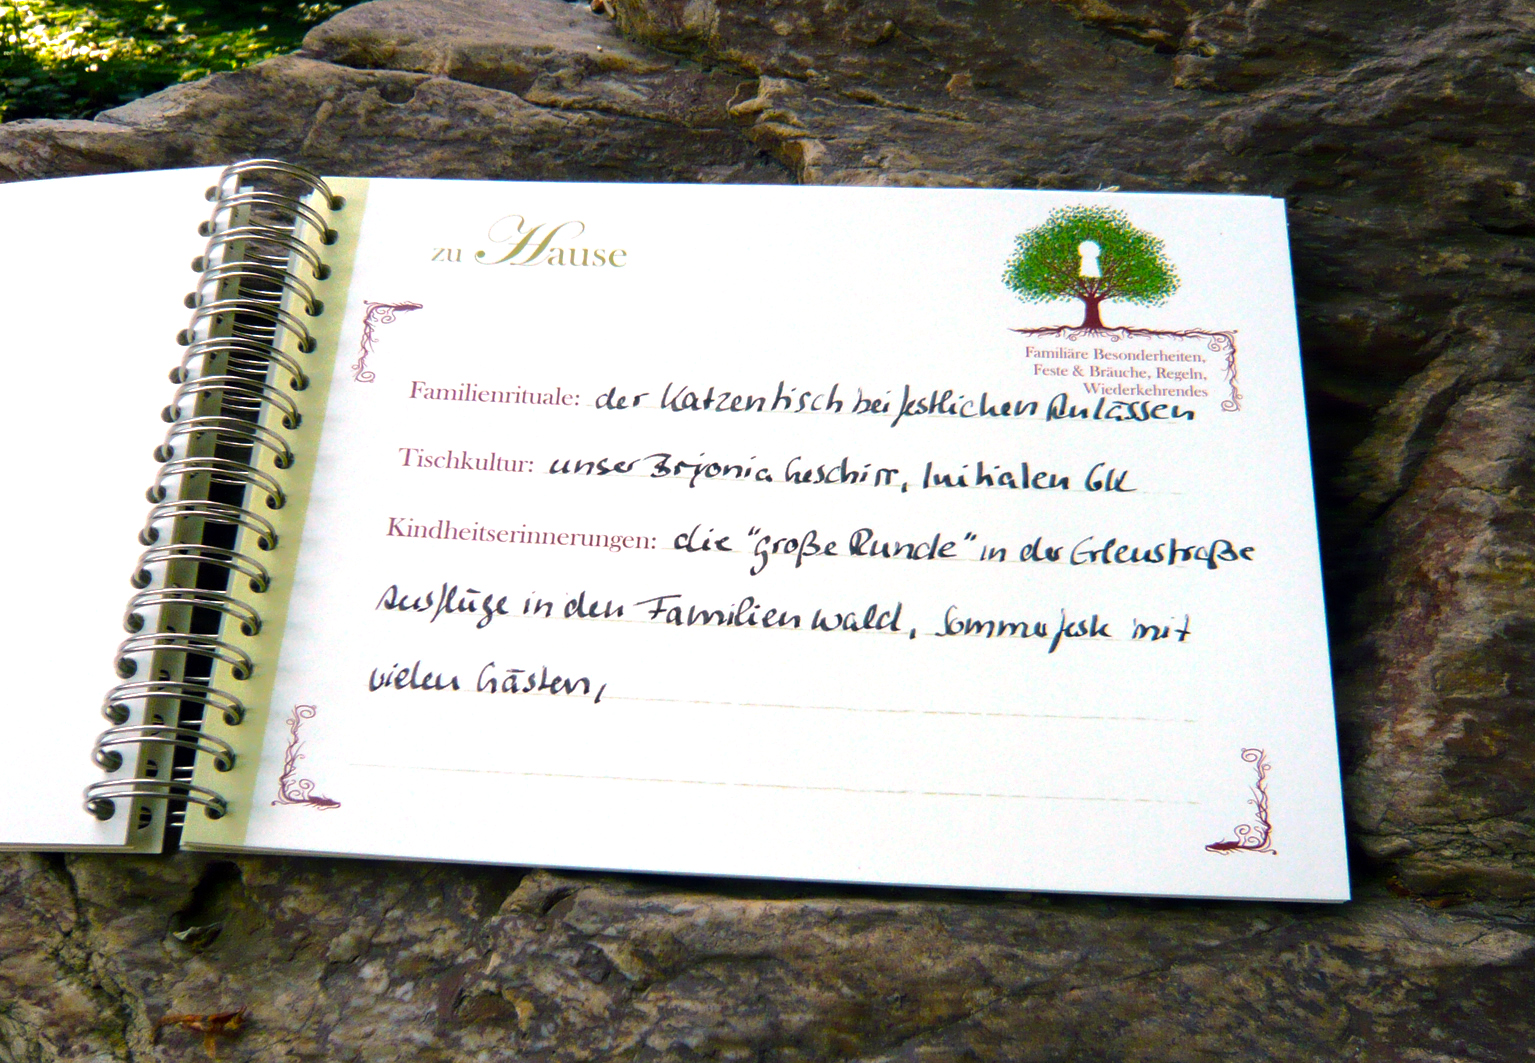 zu Hause
Familiäre Besonderheiten,
Feste & Bräuche, Regeln,
Wiederkehrendes
Familienrituale: der Katzentisch bei festlichen Anlässen
Tischkultur: unser Brjonia Geschirr, Initialen GK
Kindheitserinnerungen: die "große Runde" in der Erlenstraße
Ausflüge in den Familienwald, Sommerfeste mit
vielen Gästen,